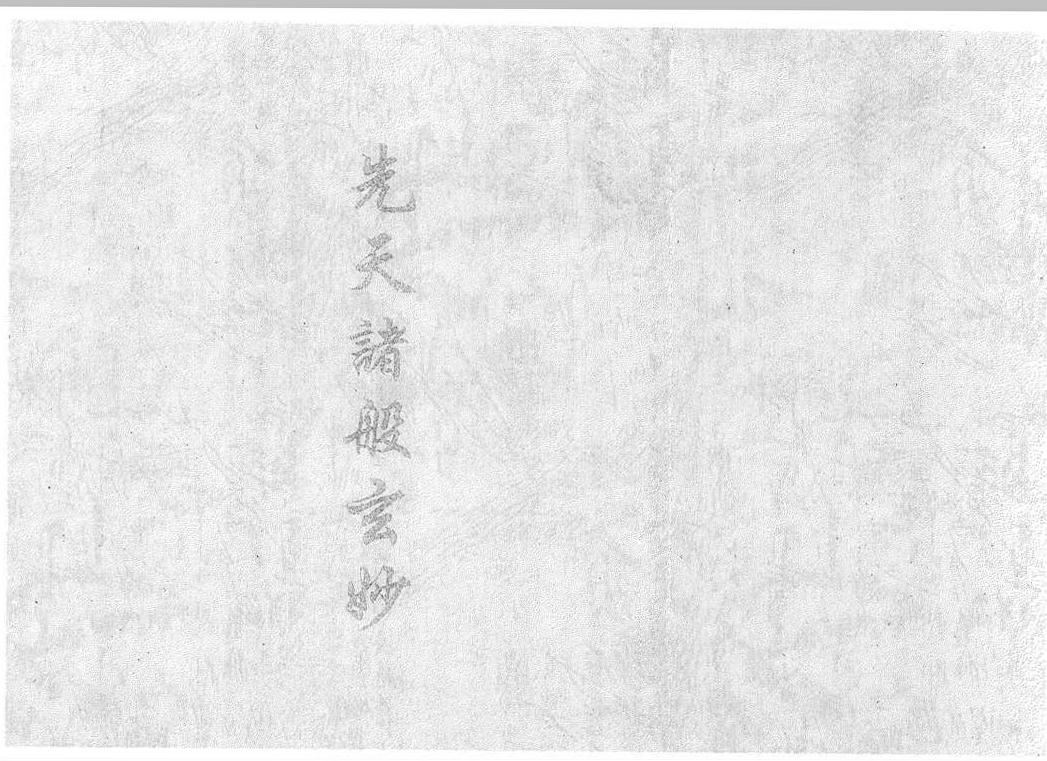 先天諸般玄妙